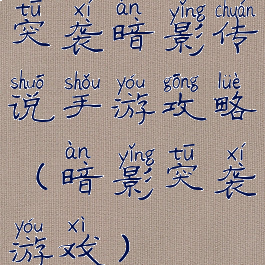 tū xí àn yǐng chuán
突袭暗影传
shuō shǒu yóu gōng lüè
说手游攻略
àn yǐng tū xí
（暗影突袭
yóu xì
游戏）